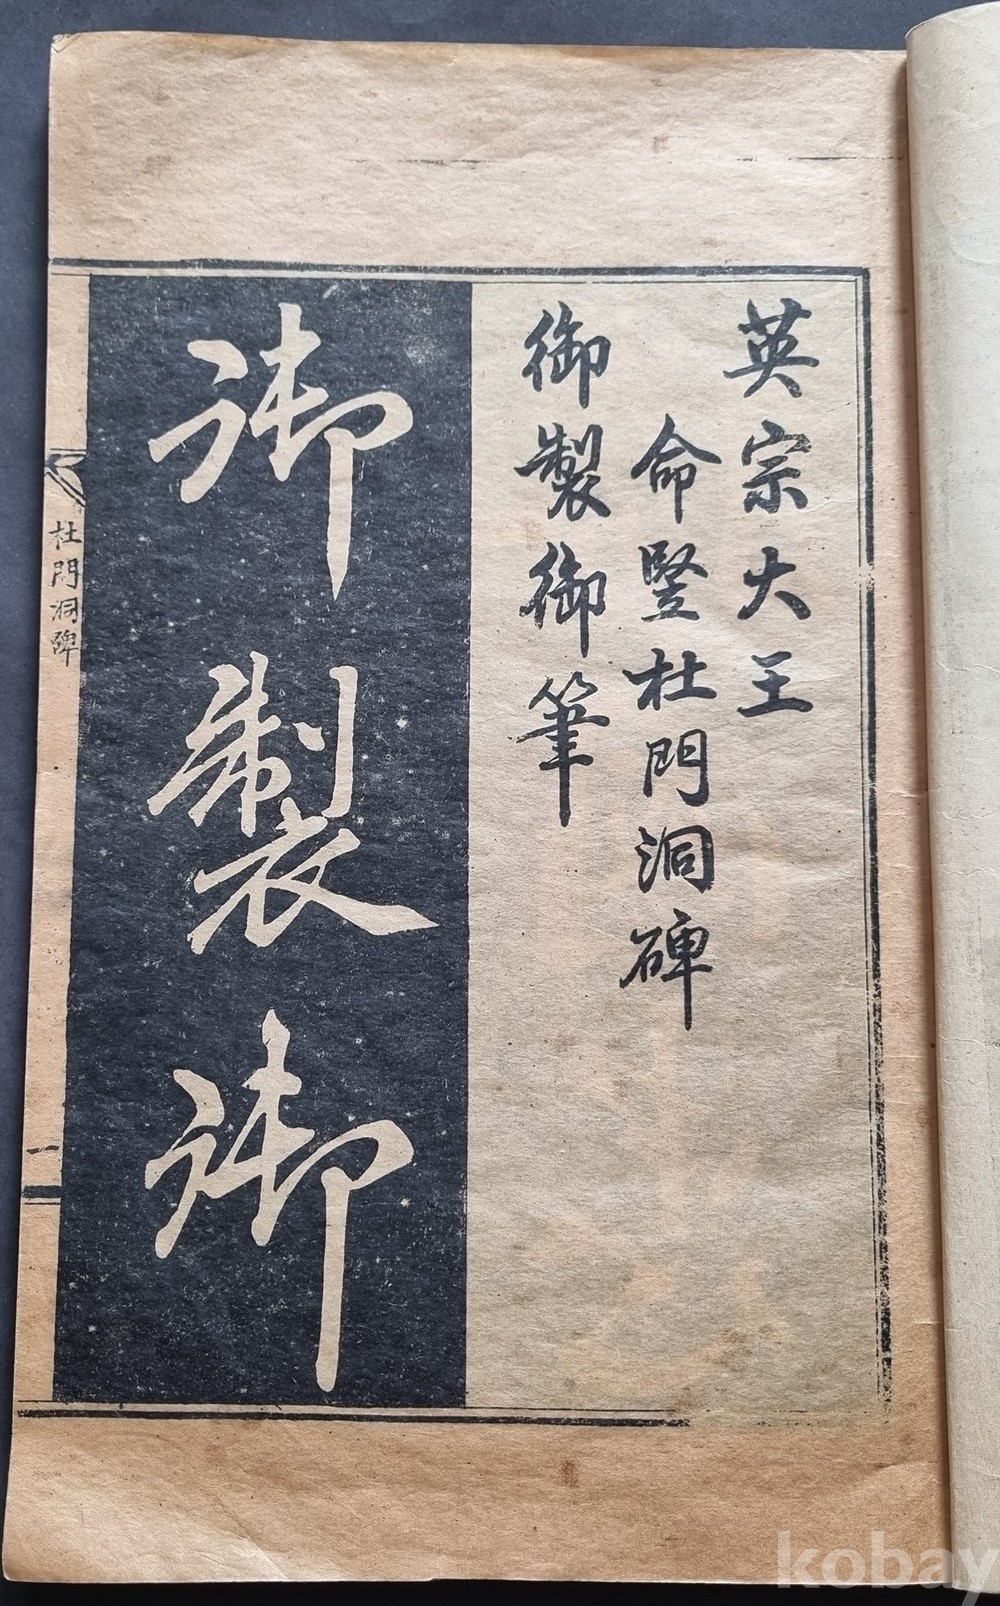 英宗大王
命豎杜門洞碑
御製御筆
御製御
杜門洞碑
一
kobay